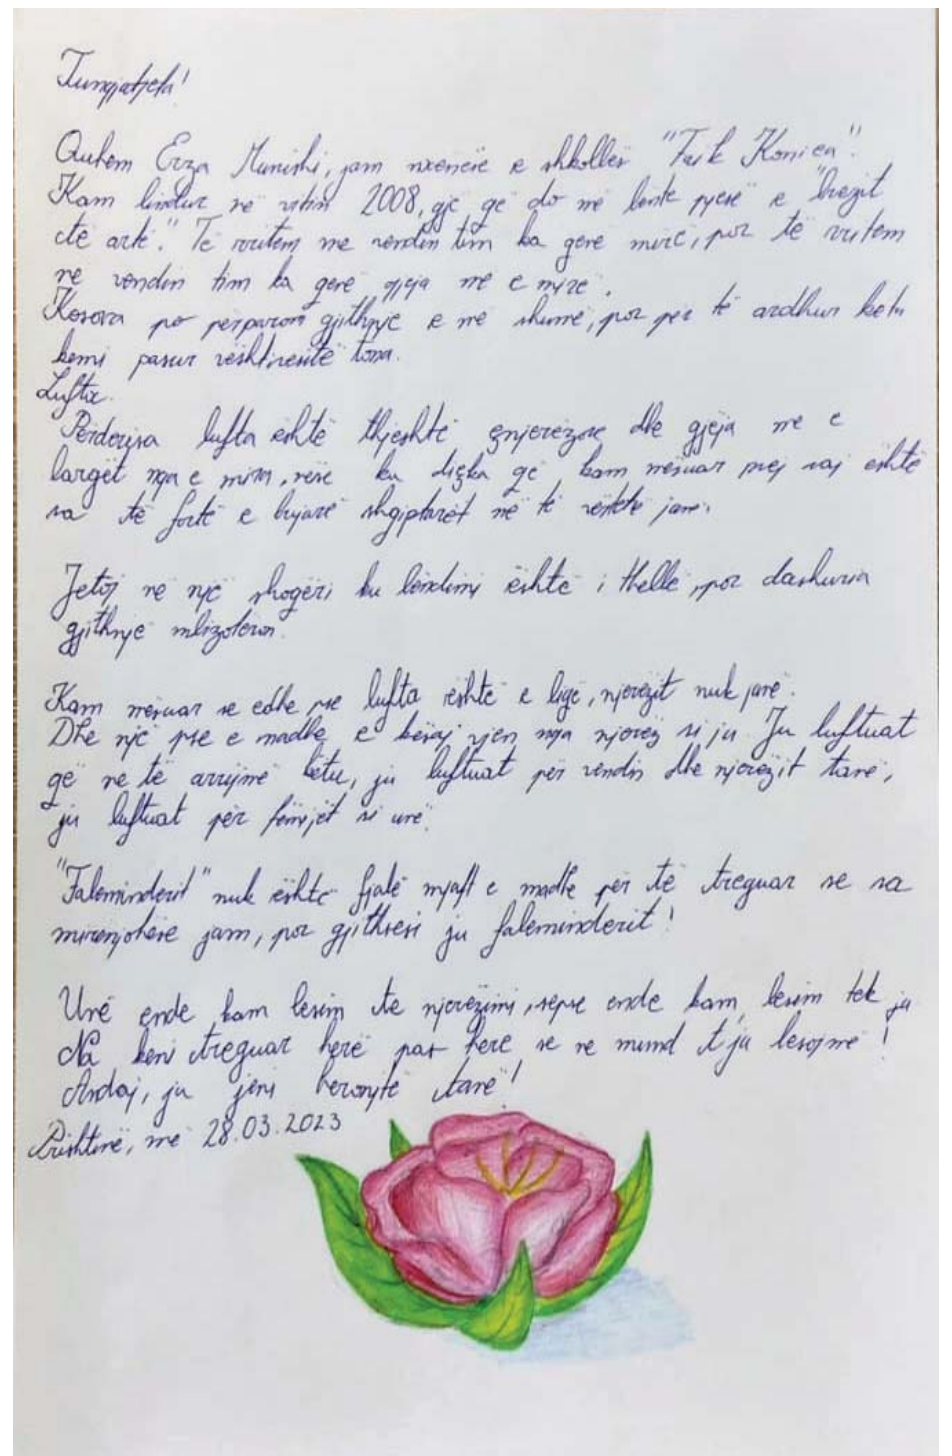 Tungjatjeta!
Quhem Erza Munishi, jam nxenëse e shkollës "Faik Konica".
Kam lindur në vitin 2008, gjë që do më bënte pjesë e "brezit
të artë." Të rritem me vendin tim ka qenë mirë, por të rritem
në vendin tim ka qenë gjëja më e mirë.
Kosova po përparon gjithnjë e më shumë, por për të ardhur këtu
kemi pasur vështirësitë tona.
Lufta.
Përderisa lufta është thjeshtë çnjerëzore dhe gjëja më e
largët nga e mira, nëse ka diçka që kam mësuar prej saj është
sa të fortë e bujarë shqiptarët në të vërtetë janë.
Jetoj në një shoqëri ku lëndimi është i thellë, por dashuria
gjithnjë mbizotëron.
Kam mësuar se edhe pse lufta është e ligë, njerëzit nuk janë.
Dhe një pse e madhe e kësaj vjen nga njerëz si ju. Ju luftuat
që ne të arrijmë këtu, ju luftuat për vendin dhe njerëzit tanë,
ju luftuat për fëmijët si unë.
"Faleminderit" nuk është fjalë mjaft e madhe për të treguar se sa
mirënjohëse jam, por gjithsesi ju faleminderit!
Unë ende kam besim te njerëzimi, sepse ende kam besim tek ju
Na keni treguar herë pas here se ne mund t'ju besojmë!
Andaj, ju jeni heronjtë tanë!
Prishtinë, më 28.03.2023